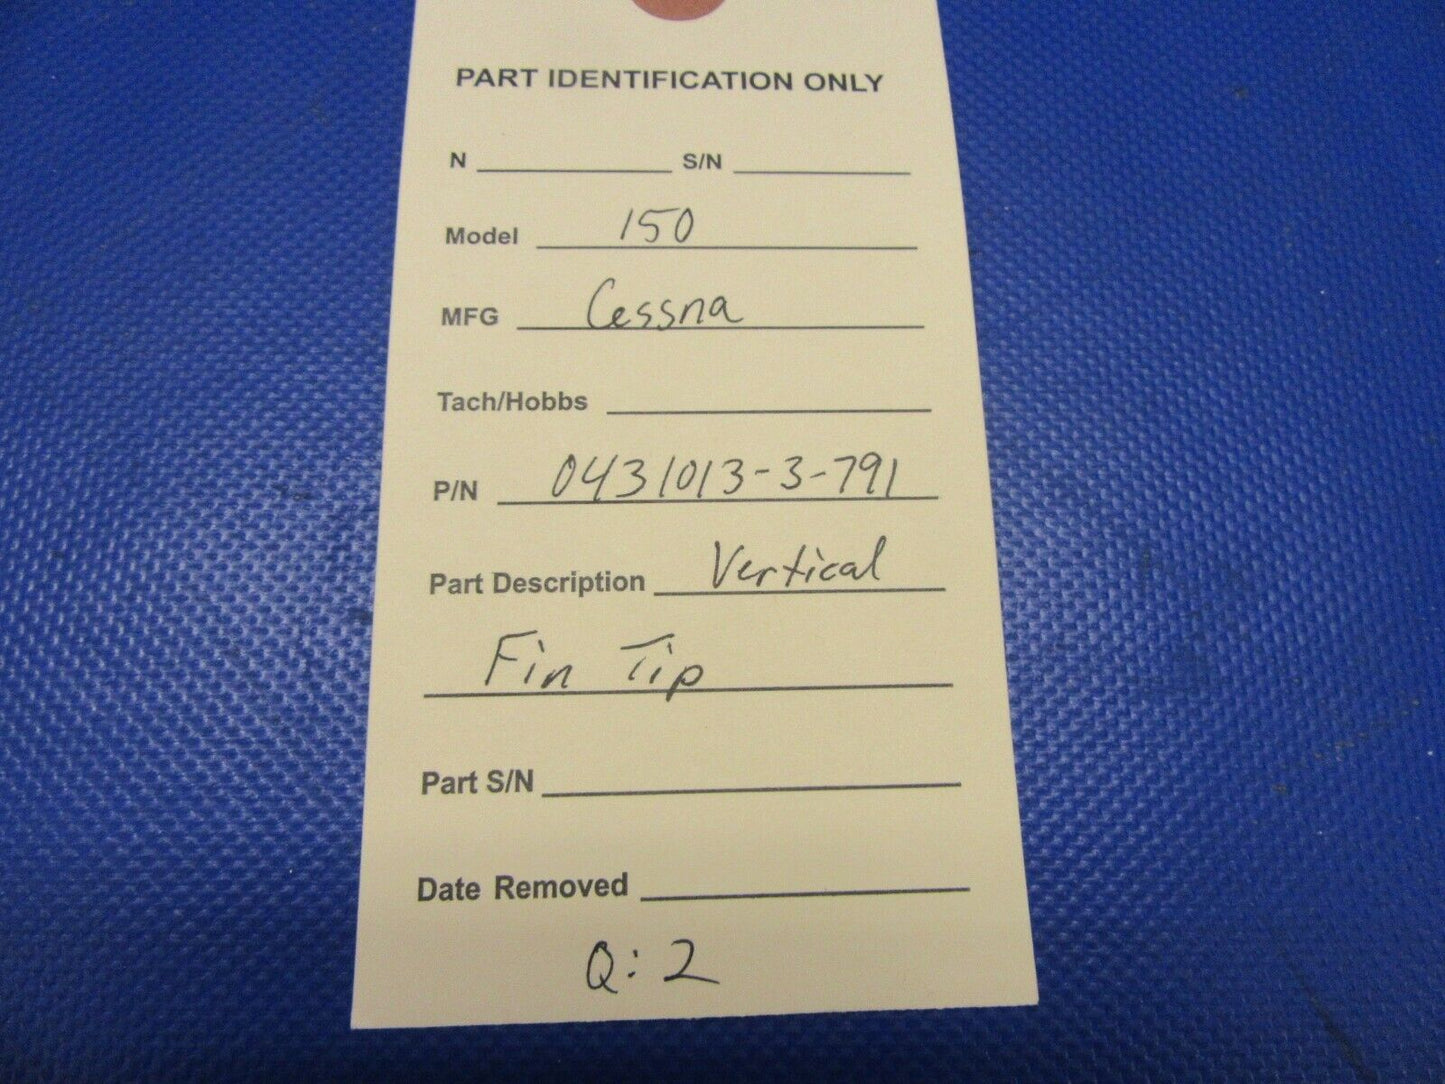 PART IDENTIFICATION ONLY
N S/N
Model 150
MFG Cessna
Tach/Hobbs
P/N 0431013-3-791
Part Description Vertical
Fin Tip
Part S/N
Date Removed
Q: 2